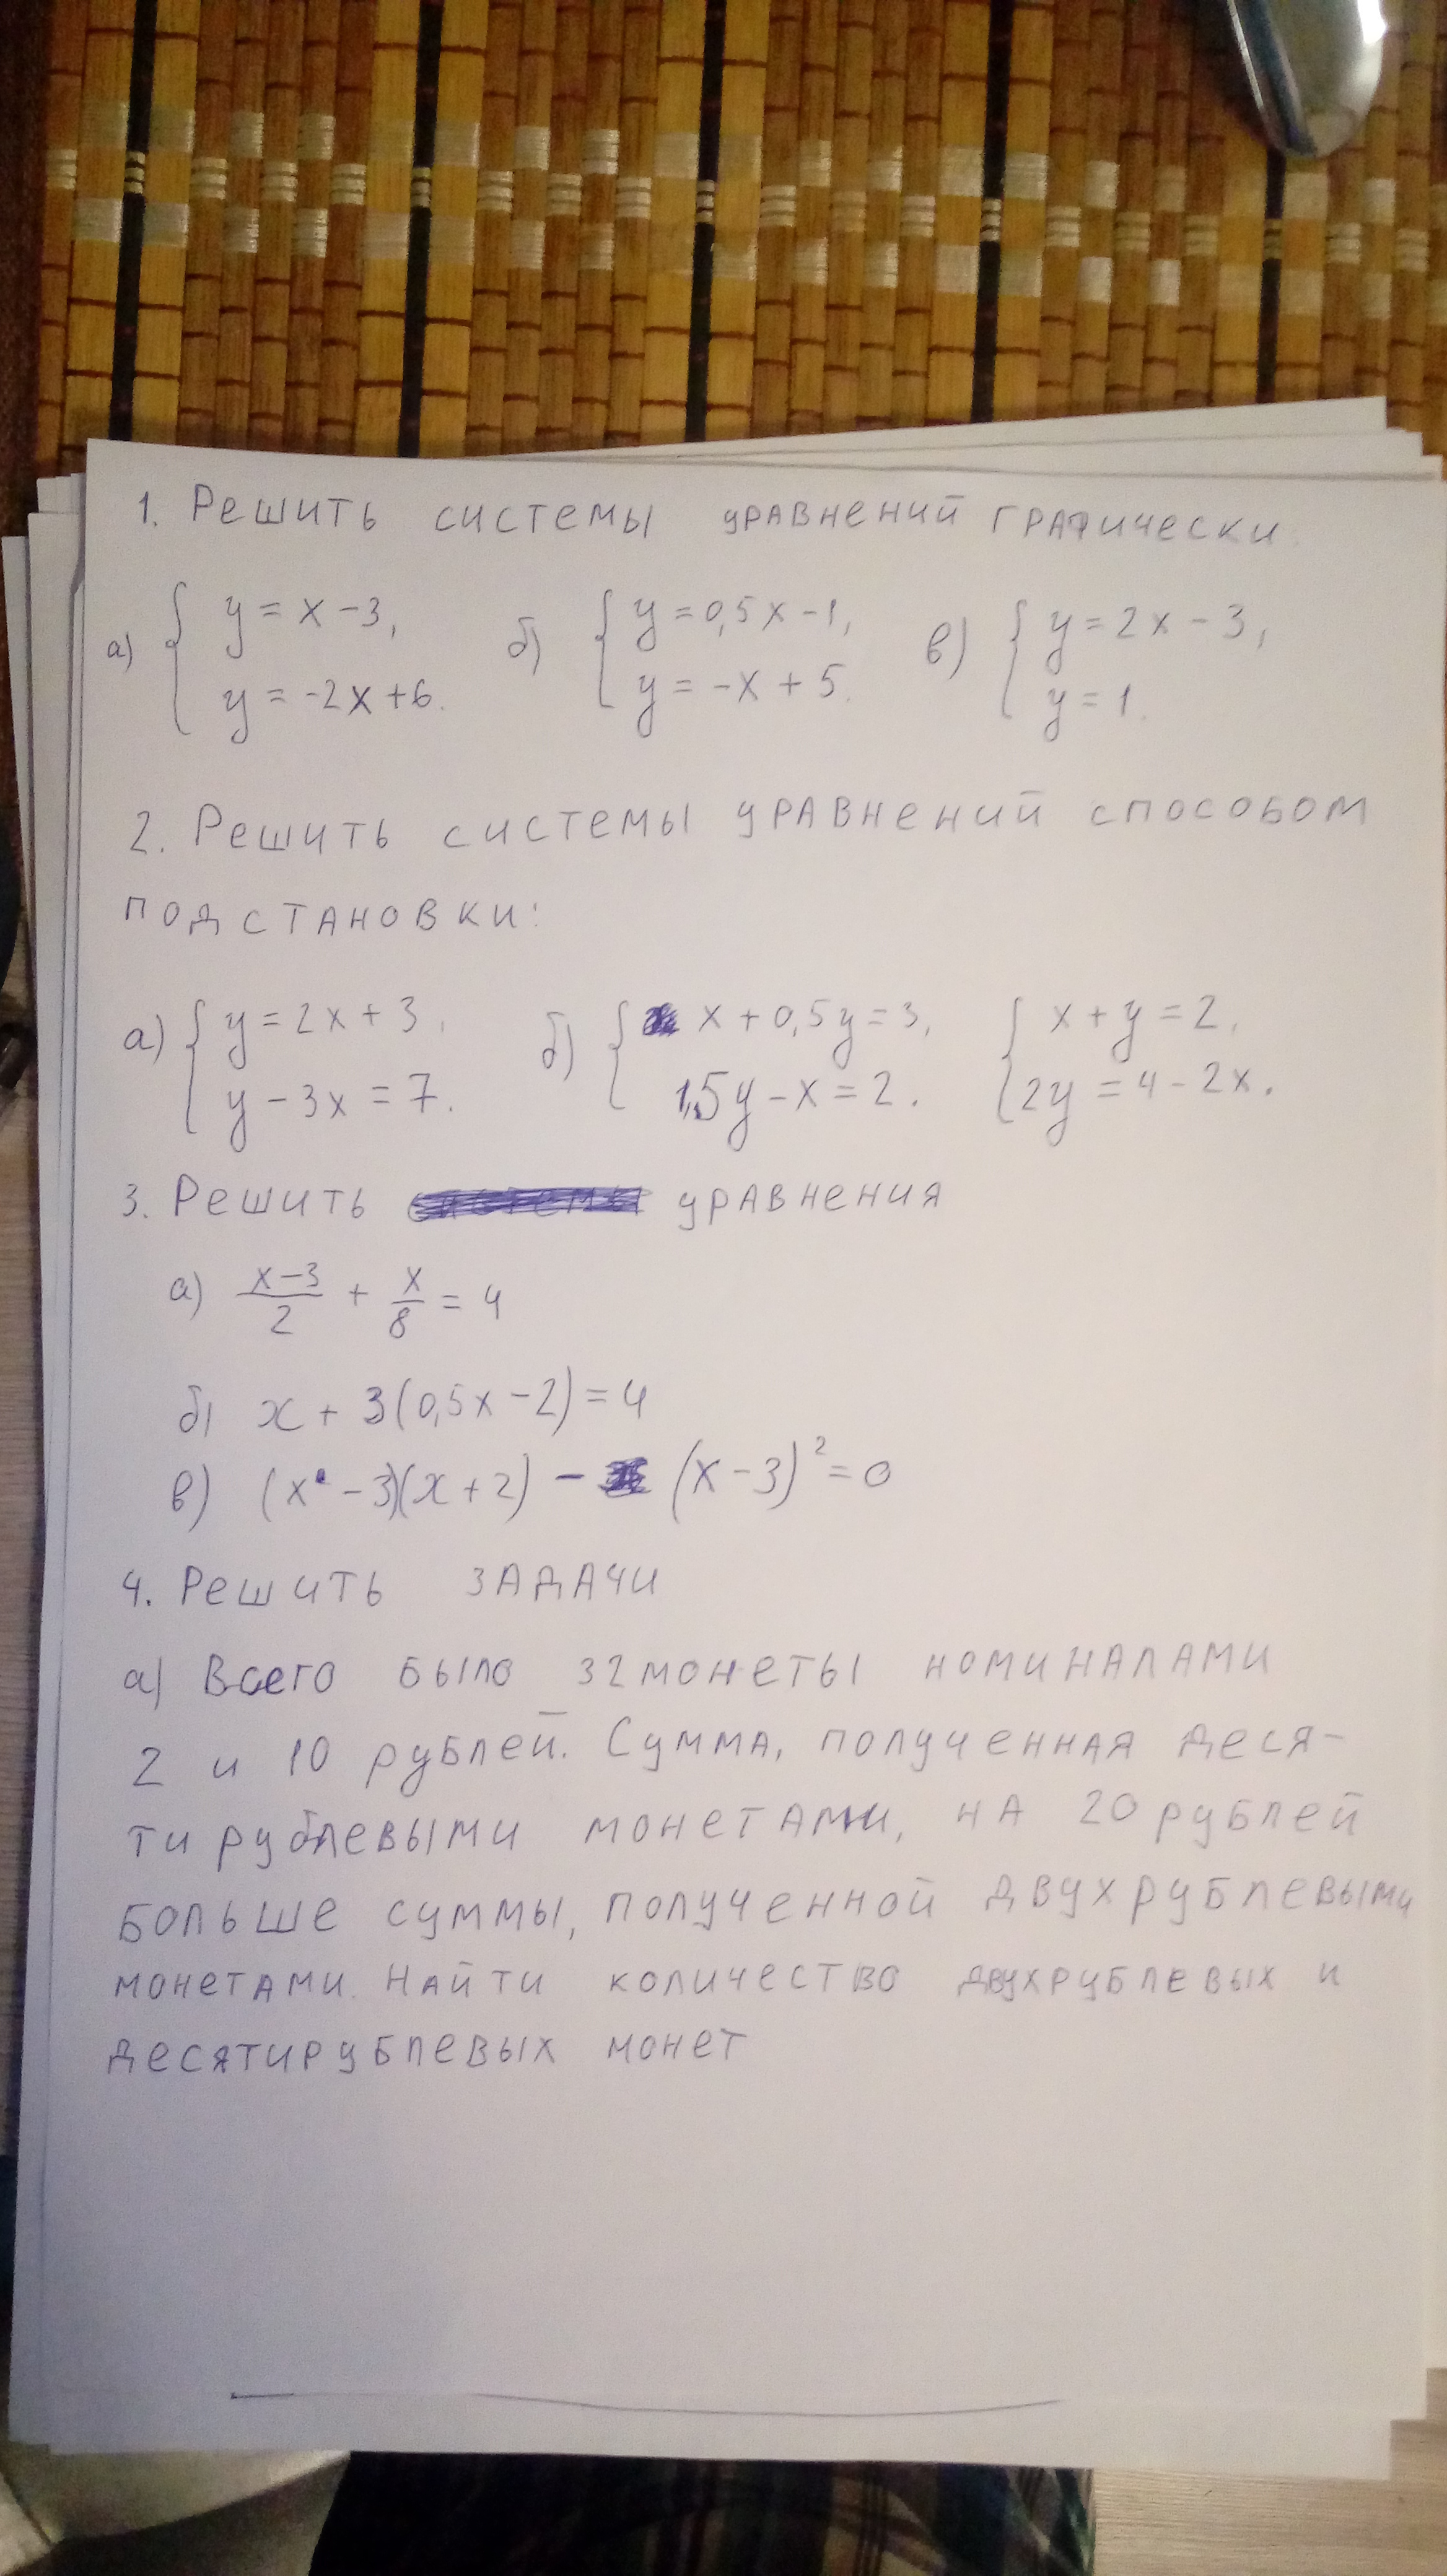 1. Решить системы уравнений графически.
а) { y = x - 3, y = -2x + 6. б) { y = 0,5x - 1, y = -x + 5. в) { y = 2x - 3, y = 1.
2. Решить системы уравнений способом
подстановки:
а) { y = 2x + 3, y - 3x = 7. б) { x + 0,5y = 3, 1,5y - x = 2. { x + y = 2, 2y = 4 - 2x.
3. Решить уравнения
а) (x-3)/2 + x/8 = 4
б) x + 3(0,5x - 2) = 4
в) (x - 3)(x + 2) - (x - 3)² = 0
4. Решить задачи
а) Всего было 32 монеты номиналами
2 и 10 рублей. Сумма, полученная деся-
тирублевыми монетами, на 20 рублей
больше суммы, полученной двухрублевыми
монетами. Найти количество двухрублевых и
десятирублевых монет